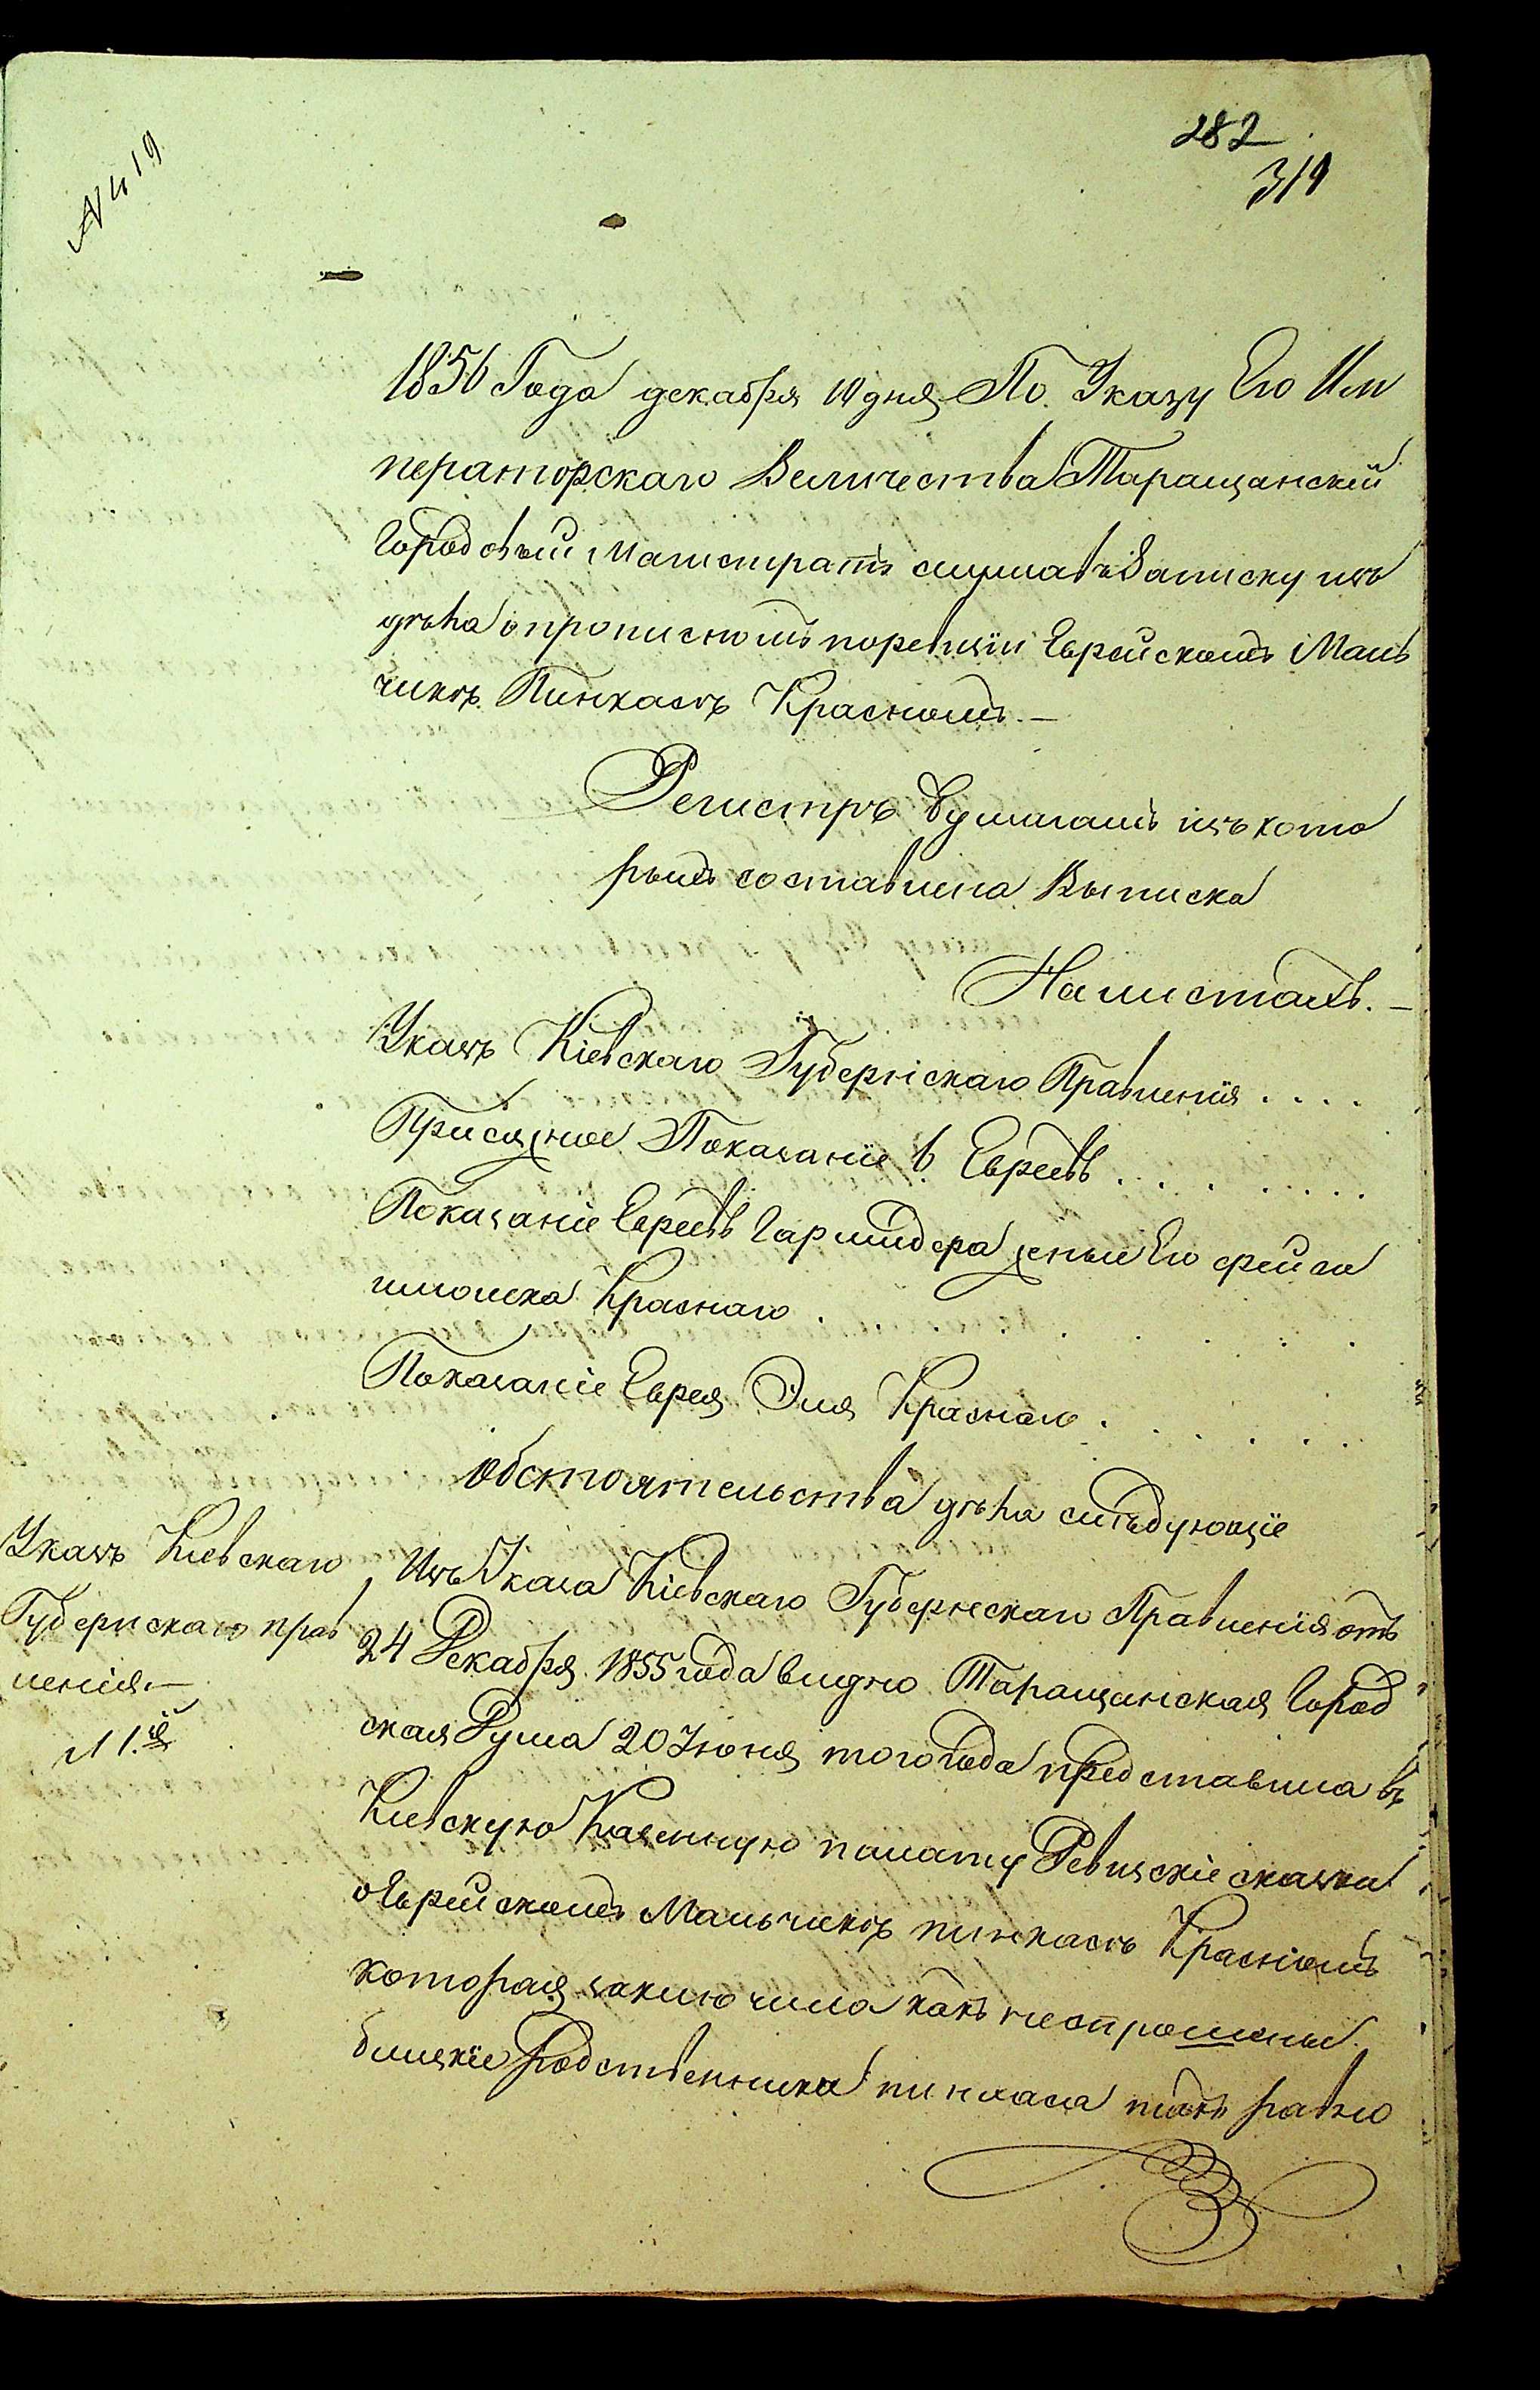 № 419
282
319
1856 Года декабря 10 дня По Указу Его Им
ператорскаго Величества Таращанскій
Городовый Магистратъ слушавъ Записку изъ
дѣла о прописномъ по ревизіи Еврейскомъ Маль
чикѣ Пинхасѣ Красномъ. —
Регистръ бумагамъ изъ кото
рыхъ составлена Выписка
На листахъ. —
Указъ Кіевскаго Губернскаго Правленія . . . .
Присяжное Показаніе 6. Евреевъ . . . . . . . .
Показаніе Евреевъ жены Его
Краснаго . . . . . . . .
Показаніе Еврея Эля Краснаго . . . . . .
Обстоятельства дѣла слѣдующіе
Указъ Кіевскаго
Губернскаго прав
ленія. —
Изъ Указа Кіевскаго Губернскаго Правленія отъ
24 Декабря 1855 года видно Таращанская Город
ская Дума 20 Іюня того года представила въ
Кіевскую Казенную палату Ревизскіе сказки
о Еврейскомъ Мальчикѣ пинхасѣ Красномъ
которая заключила какъ неспрошены
близкіе Родственника пинхаса такъ равно